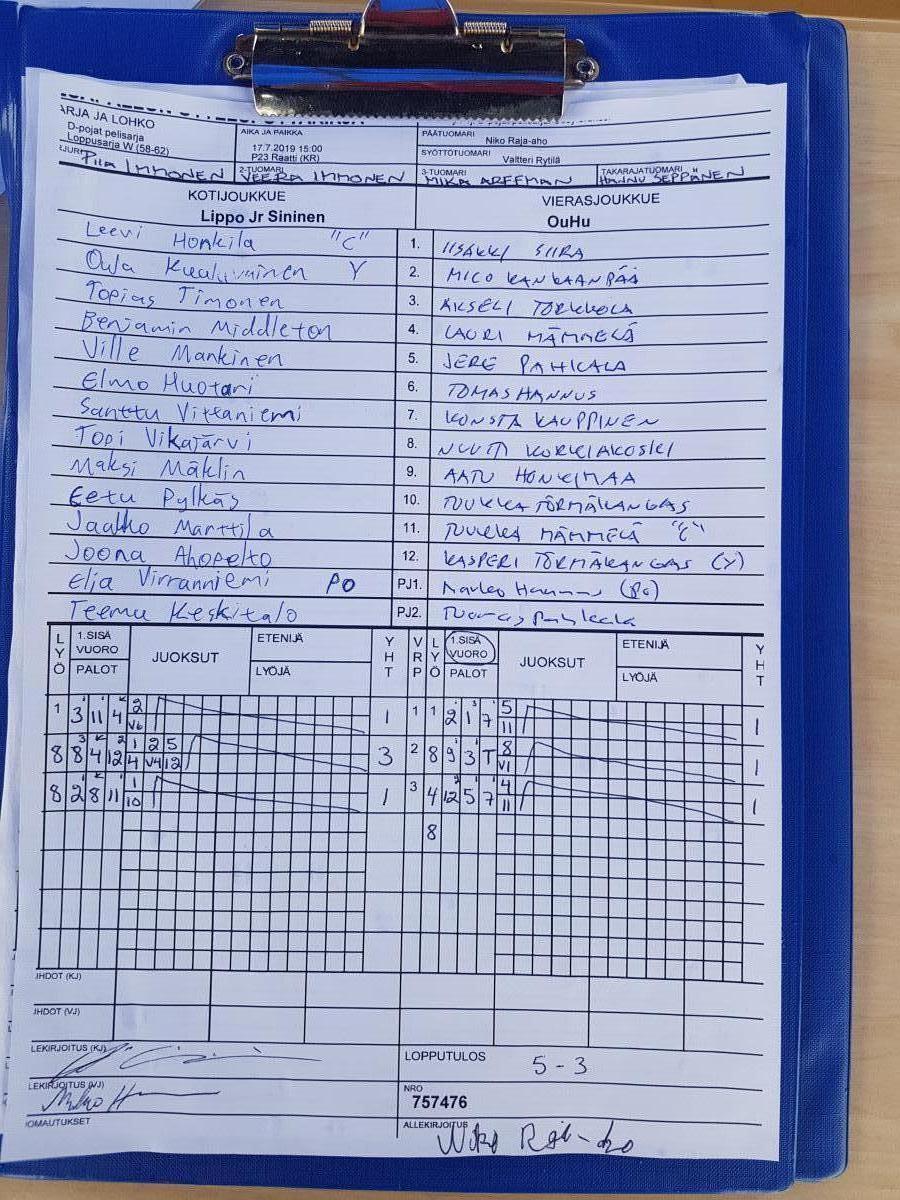 ARJA JA LOHKO
D-pojat pelisarja
Loppusarja W (58-62)
AIKA JA PAIKKA
17.7.2019 15:00
P23 Raatti (KR)
PÄÄTUOMARI
Niko Raja-aho
SYÖTTÖTUOMARI Valtteri Rytilä
PIIA IMMONEN
2-TUOMARI VEERA IMMONEN
3-TUOMARI MIKA ARFFMAN
TAKARAJATUOMARI HANNU SEPPÄNEN
KOTIJOUKKUE VIERASJOUKKUE
Lippo Jr Sininen OuHu
Leevi Honkila "C" 1. IISAKKI SIIRA
2. MICO KANKAANPÄÄ
Topias Timonen 3. AKSELI TORKKOLA
Benjamin Middleton 4. LAURI MÄMMELÄ
Ville Mankinen 5. JERE PAHKALA
Elmo Huotari 6. TOMAS HANNUS
Santtu Vittaniemi 7. KONSTA KAUPPINEN
Topi Vikajärvi 8. KORKIAKOSKI
Maksi Mäklin 9. AATU HONKIMAA
Eetu Pylkäs 10. TUUKKA TÖRMÄKANGAS
Jaakko Marttila 11. TUUKKA MÄMMELÄ "C"
Joona Ahopelto 12. KASPERI TÖRMÄKANGAS (Y)
Elia Virranniemi PO PJ1. (PO)
Teemu Keskitalo PJ2.
LYÖ 1.SISÄ VUORO PALOT JUOKSUT ETENIJÄ LYÖJÄ YHT VRP LYÖ 1.SISÄ VUORO PALOT JUOKSUT ETENIJÄ LYÖJÄ YHT
1 3 11 4 2 V6 1 1 1 2 1 7 5 11 1
8 8 4 12 1 2 5 4 V4 12 3 2 8 9 3 T 8 V1 1
8 2 8 11 1 10 1 3 4 12 5 7 4 11 1
8
IHDOT (KJ)
IHDOT (VJ)
LEKIRJOITUS (KJ)
LOPPUTULOS 5-3
LEKIRJOITUS (VJ)
NRO
757476
OMAUTUKSET
ALLEKIRJOITUS